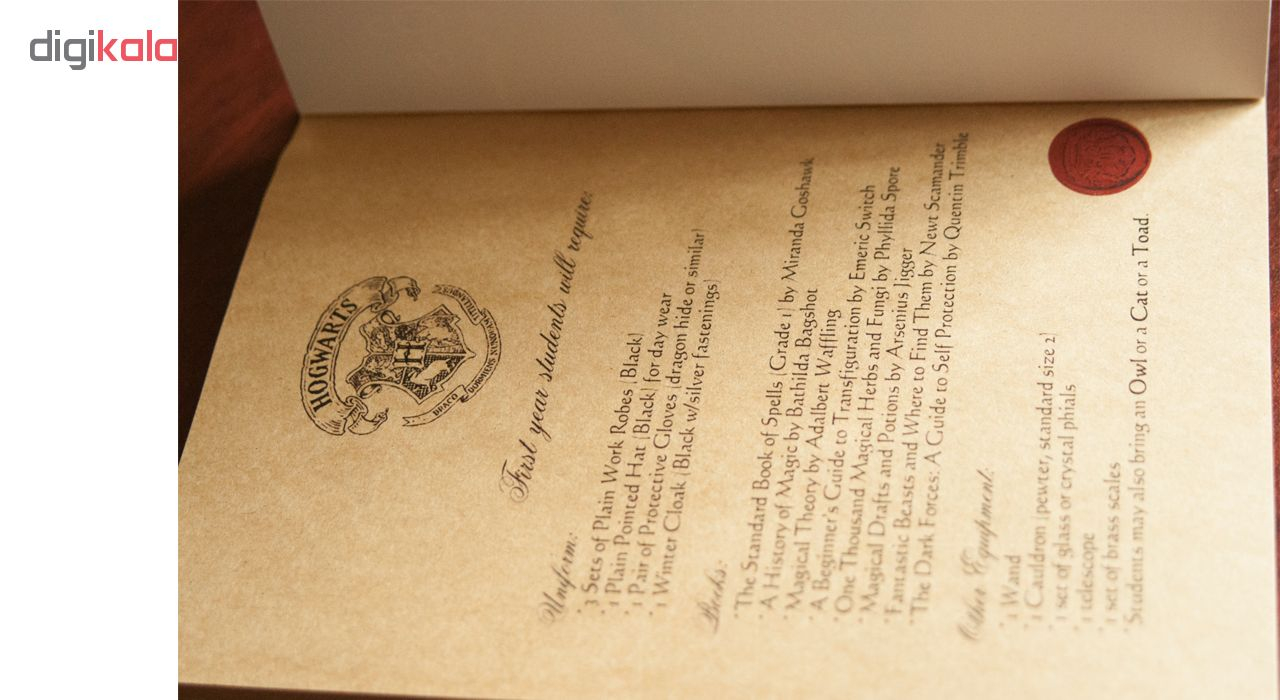 digikala
HOGWARTS
H
DRACO DORMIENS NUNQUAM TITILLANDUS
First year students will require:
Uniform:
· 3 Sets of Plain Work Robes (Black)
· 1 Plain Pointed Hat (Black) for day wear
· 1 Pair of Protective Gloves (dragon hide or similar)
· 1 Winter Cloak (Black w/silver fastenings)
Books:
· The Standard Book of Spells (Grade 1) by Miranda Goshawk
· A History of Magic by Bathilda Bagshot
· Magical Theory by Adalbert Waffling
· A Beginner's Guide to Transfiguration by Emeric Switch
· One Thousand Magical Herbs and Fungi by Phyllida Spore
· Magical Drafts and Potions by Arsenius Jigger
· Fantastic Beasts and Where to Find Them by Newt Scamander
· The Dark Forces: A Guide to Self Protection by Quentin Trimble
Other Equipment:
· 1 Wand
· 1 Cauldron (pewter, standard size 2)
· 1 set of glass or crystal phials
· 1 telescope
· 1 set of brass scales
· Students may also bring an Owl or a Cat or a Toad.